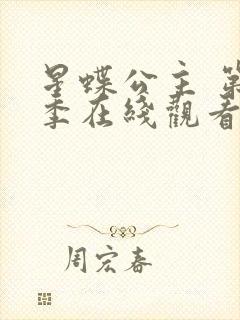 星蝶公主 第
季在綫觀看
周宏春